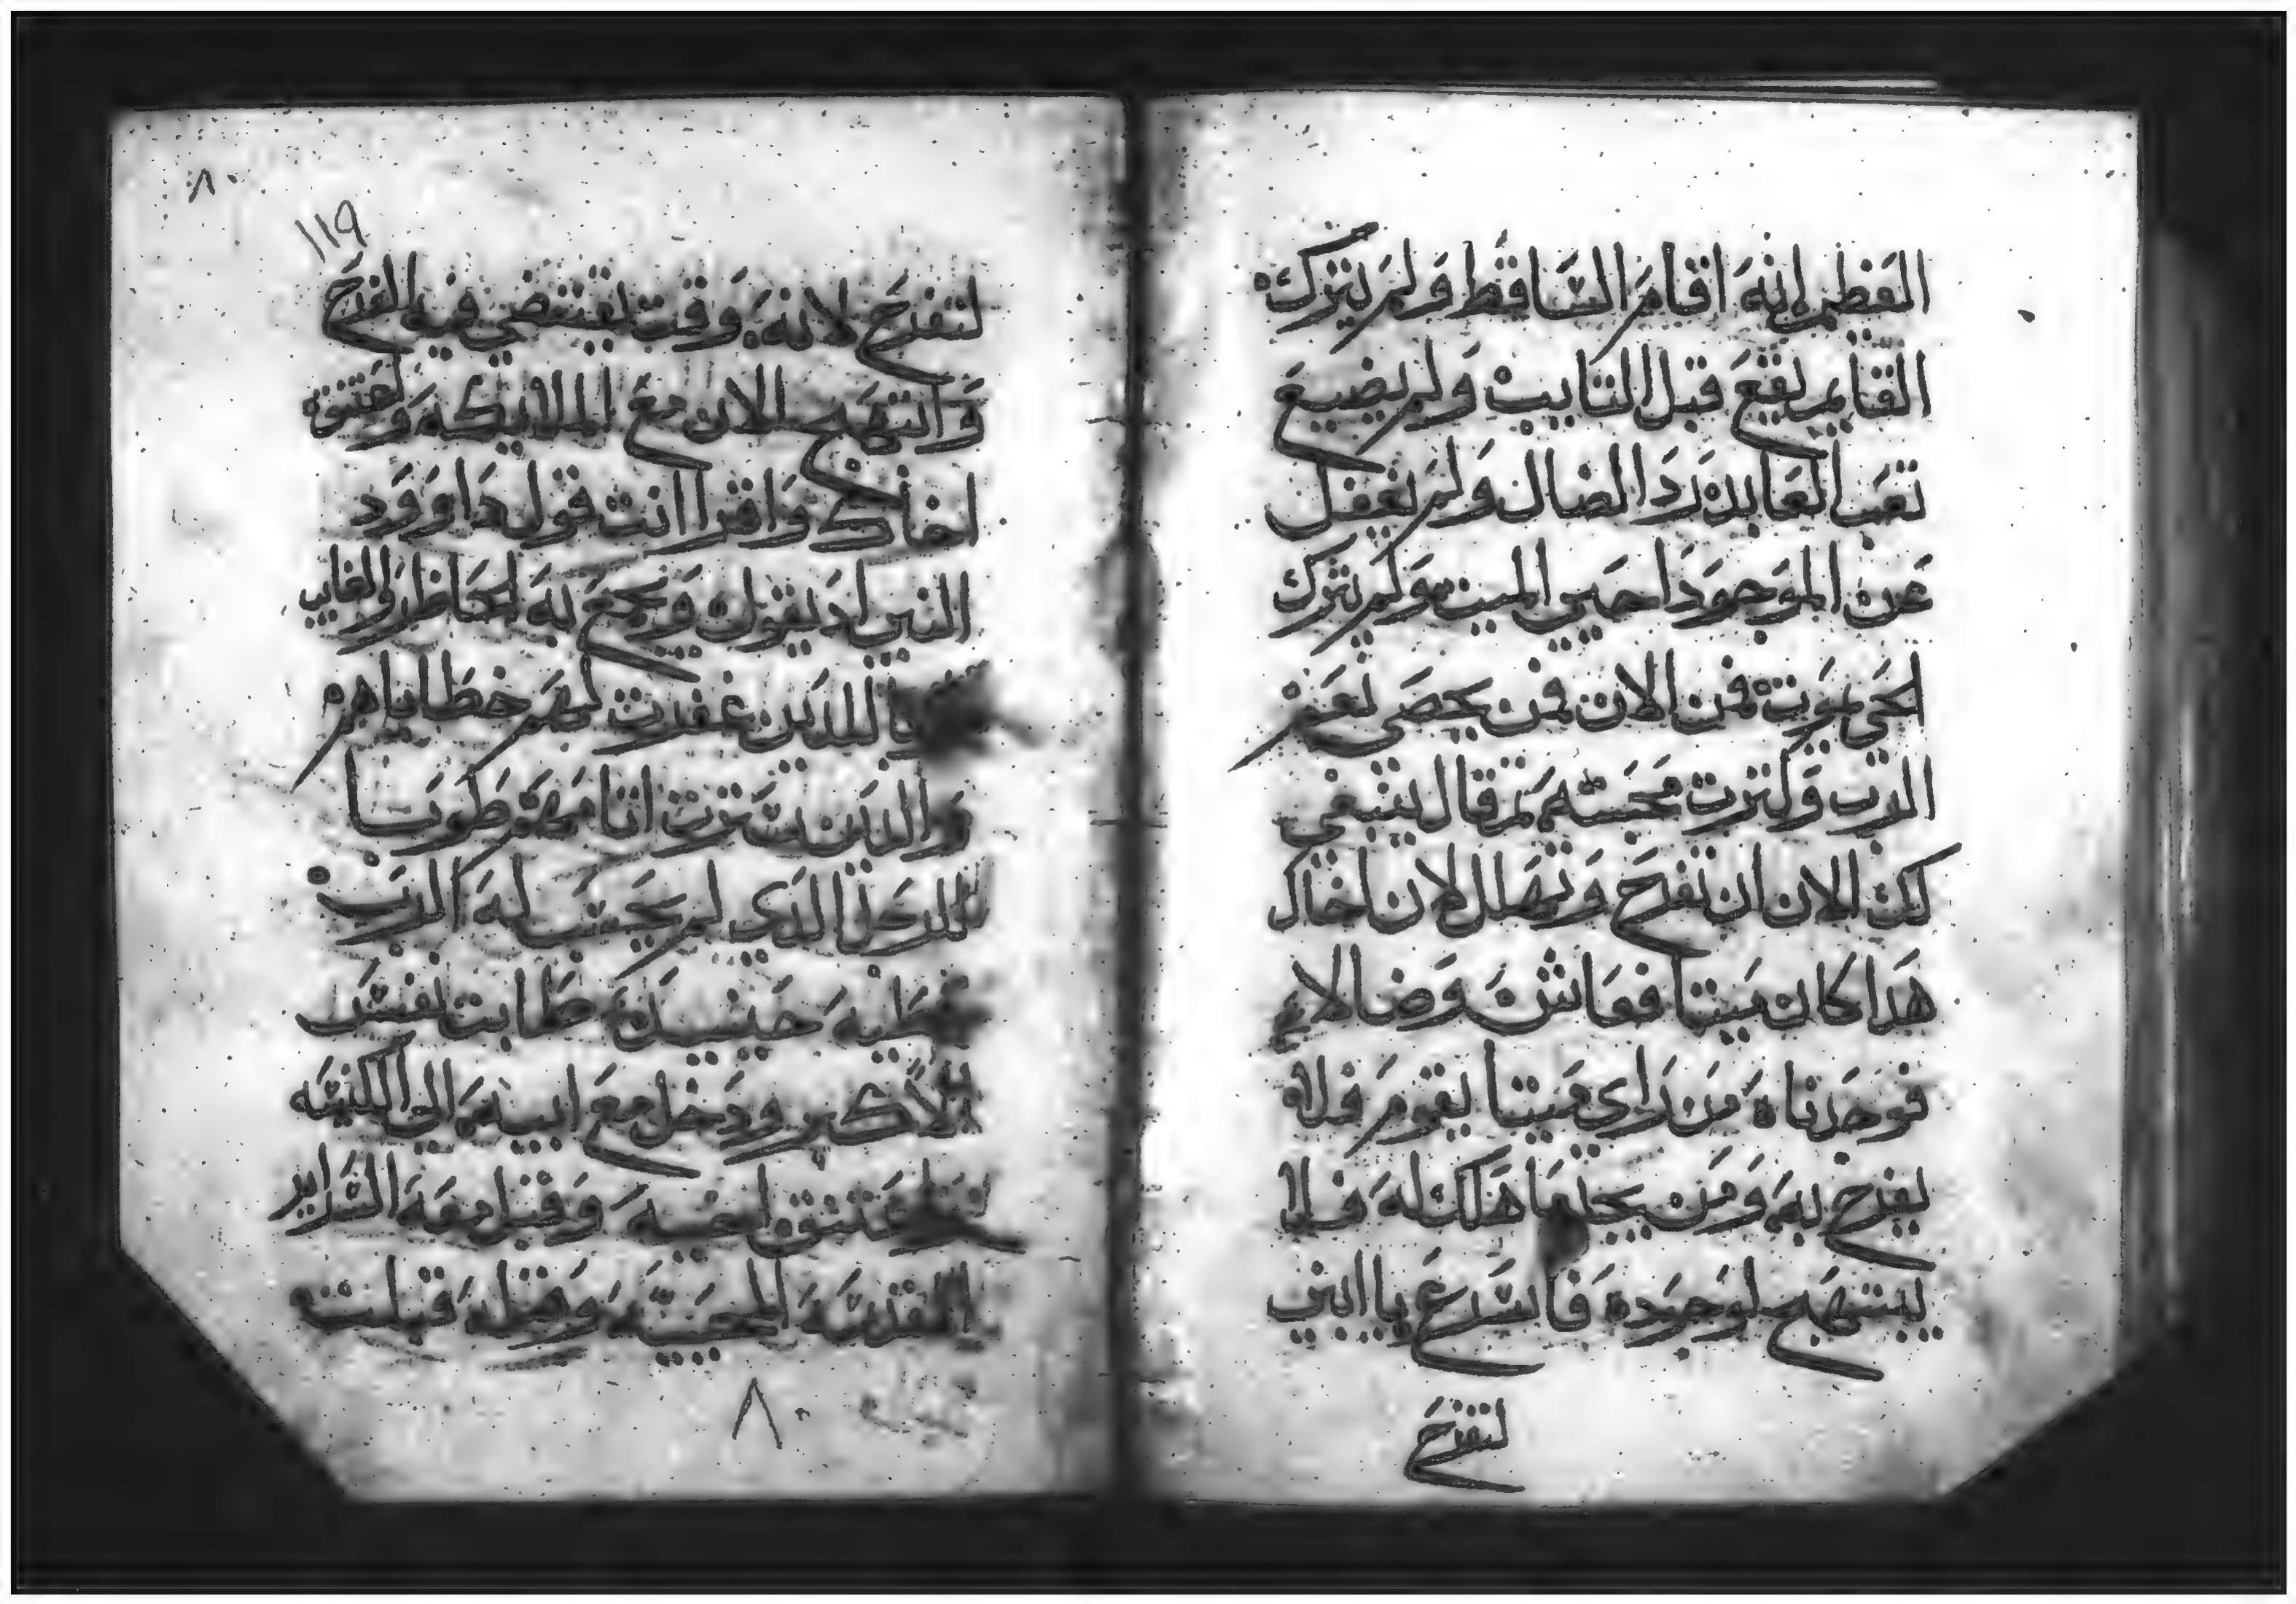 العظيم انه اقام الساقط ولم يترك
القايم يقع قبل التايب ولم يضيع
تعب العابد رد الضال ولم يغفل
عن الموجود احيي الميت ولم يترك
الحي يموت فمن الان فمن يحصي نعم
الرب وكثرت محبته ثم قال ينبغي
لك الان ان تفرح وتهلل لان اخاك
هذا كان ميتا فعاش وضالا
فوجدناه من راي ميتا يقوم فلا
يفرح به ومن يجد ما هلك له فلا
يبتهج لوجوده فاسرع يا ابني
لتفرح
٨٠
١١٩
لتفرح لانه وقت يقتضي فيه الفرح
وابتهج الان مع الملايكه واعتنق
اخاك واقرا انت قول داوود
النبي اد يقول ويجمع به الحاظر والغايب
للدين غفرت لهم خطاياهم
والدين سترت اتامهم طوبا
للرجل الدي لم يحسب له الرب
خطيه حينيد طابت نفس
الاكبر ودخل مع ابيه الي الكنيسه
واعتنق اخيه وقبل معه السراير
المقدسه المحييه وهوله قبلت
٨٠